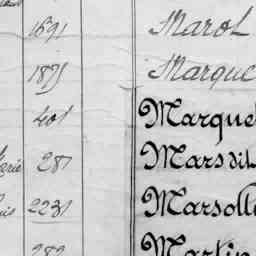 1691 Marol
1875 Marque
401 Marque
281 Marsdil
2231 Marsoll
282 Martin